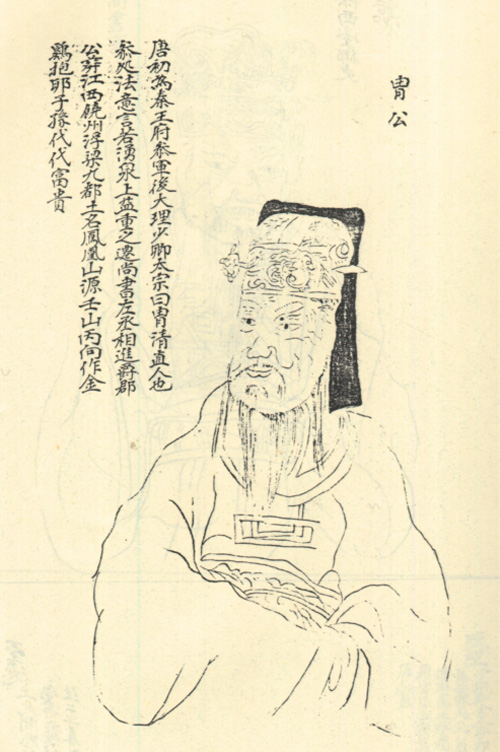 胄公
唐初為秦王府參軍後大理少卿太宗曰胄清直人也
參処法意言若湧泉上益重之遷尚書左丞相進爵郡
公葬江西饒州浮梁九都土名鳳凰山源壬山丙向作金
鷄抱耶子孫代代富貴